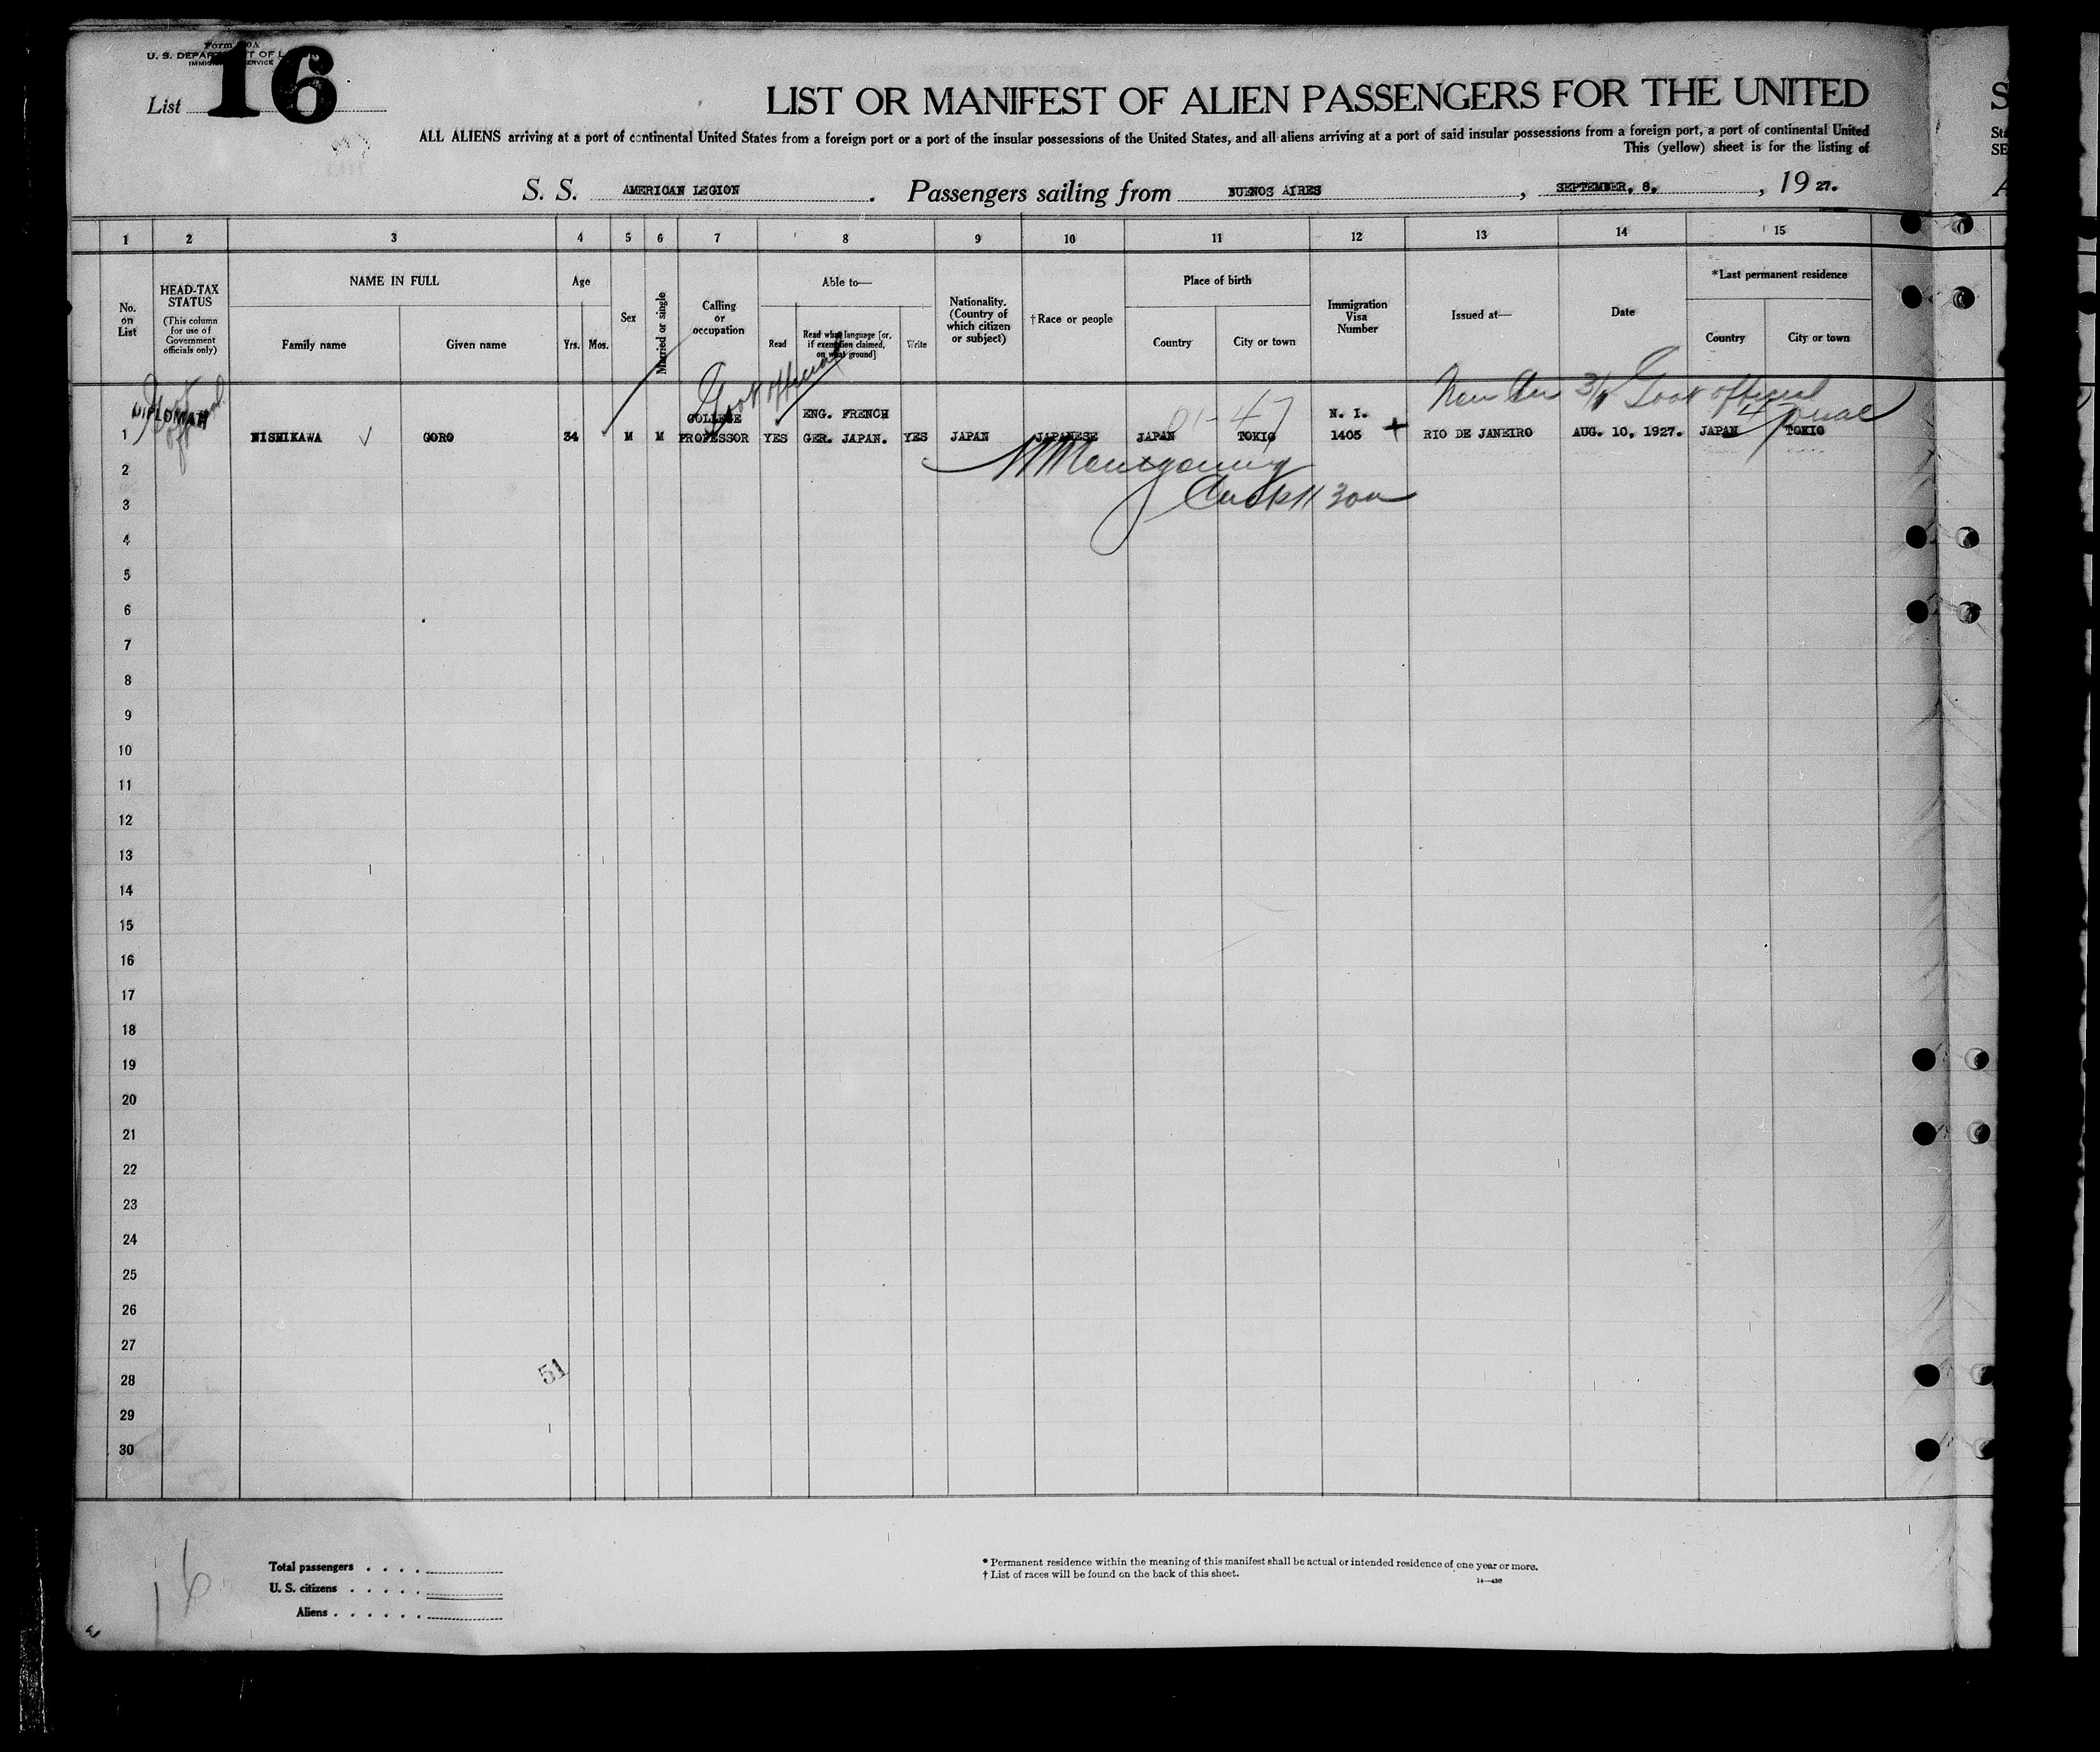 Form
U. S. DEPARTMENT OF
List 16
LIST OR MANIFEST OF ALIEN PASSENGERS FOR THE UNITED
ALL ALIENS arriving at a port of continental United States from a foreign port or a port of the insular possessions of the United States, and all aliens arriving at a port of said insular possessions from a foreign port, a port of continental United
This (yellow) sheet is for the listing of
S. S. AMERICAN LEGION. Passengers sailing from BUENOS AIRES, SEPTEMBER, 8., 1927.
1 2 3 4 5 6 7 8 9 10 11 12 13 14 15
No. on List
HEAD-TAX STATUS
(This column for use of Government officials only)
NAME IN FULL
Family name
Given name
Age
Yrs. Mos.
Sex
Married or single
Calling or occupation
Able to—
Read
Read what language [or, if exemption claimed, on what ground]
Write
Nationality. (Country of which citizen or subject)
†Race or people
Place of birth
Country
City or town
Immigration Visa Number
Issued at—
Date
*Last permanent residence
Country
City or town
Govt official
Govt official
DIPLOMAT COLLEGE ENG. FRENCH N. I.
1 NISHIKAWA GORO 34 M M PROFESSOR YES GER. JAPAN. YES JAPAN JAPANESE JAPAN TOKIO 1405 RIO DE JANEIRO AUG. 10, 1927. JAPAN TOKIO
Montgomery
2
3
4
5
6
7
8
9
10
11
12
13
14
15
16
17
18
19
20
21
22
23
24
25
26
27
28
29
30
51
16
Total passengers
U. S. citizens
Aliens
* Permanent residence within the meaning of this manifest shall be actual or intended residence of one year or more.
† List of races will be found on the back of this sheet.